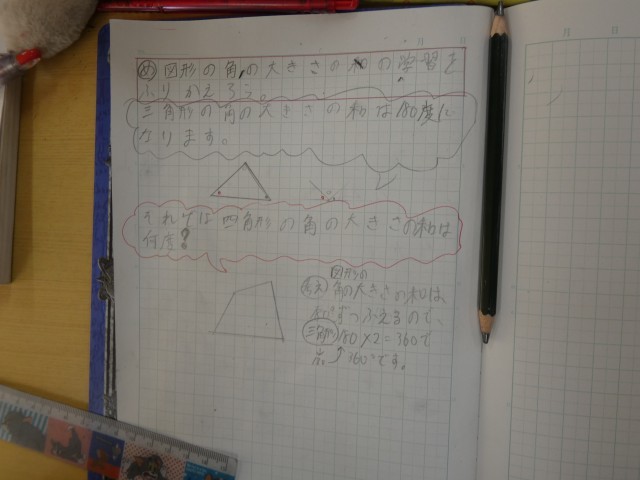 め 図形の角の大きさの和の学習を
ふりかえろう。
三角形の角の大きさの和は180度に
なります。
それでは四角形の角の大きさの和は
何度?
図形の
考え 角の大きさの和は、
ずつふえるので、
三角形 180×2=360で
360°です。